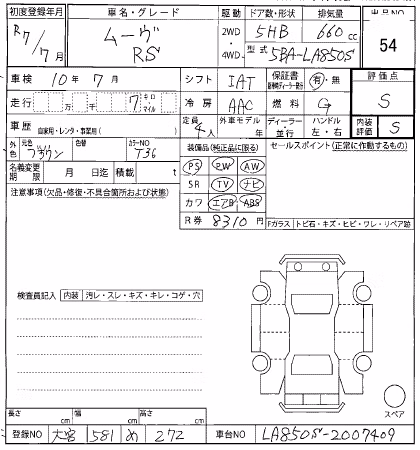 初度登録年月 車名・グレード 駆動 ドア数・形状 排気量 出品NO
R7/7月 ムーヴ RS 2WD・4WD 5HB 660cc 54
型式 5BA-LA850S
車検 10年7月 シフト IAT 保証書 有・無 評価点
走行 万 千 7 キロ・マイル 冷房 AAC 燃料 G S
車歴 自家用・レンタ・事業用( ) 定員 4人 外車モデル 年 ディーラー・並行 ハンドル 左・右 内装評価 S
外色 元色 ブラウン 色替 カラーNO T36 装備品(純正品に限る) セールスポイント(正常に作動するもの)
名義変更期限 月 日迄 積載 t PS PW AW
注意事項(欠品・修復・不具合箇所および状態) SR TV ナビ
カワ エアB ABS
R券 8310円 Fガラス トビ石・キズ・ヒビ・ワレ・リペア跡
検査員記入 内装 汚レ・スレ・キズ・キレ・コゲ・穴
スペア
長さ cm 幅 cm 高さ cm
登録NO 大宮 581 め 272 車台NO LA850S-2007409